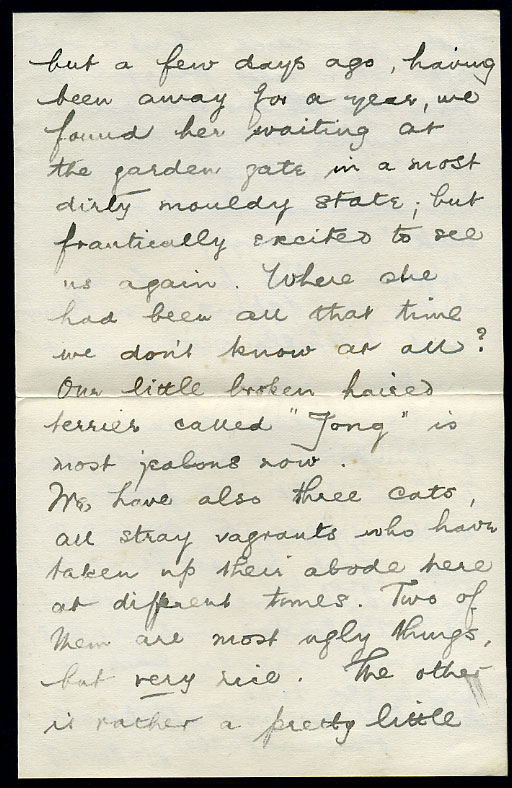 but a few days ago, having
been away for a year, we
found her waiting at
the garden gate in a most
dirty mouldy state; but
frantically excited to see
us again. Where she
had been all that time
we don't know at all?
Our little broken haired
terrier called "Jong" is
most jealous now.
We have also three cats,
all stray vagrants who have
taken up their abode here
at different times. Two of
them are most ugly things,
but very nice. The other
is rather a pretty little